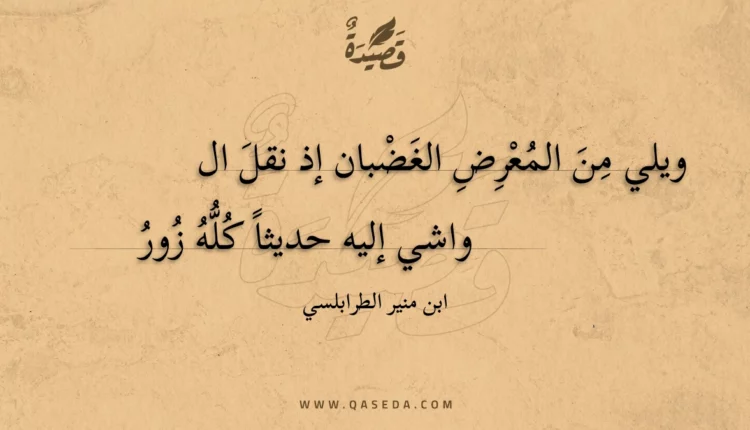 قَصِيدَةٌ
ويلي مِنَ المُعْرِضِ الغَضْبان إذ نقلَ ال
واشي إليه حديثاً كُلُّهُ زُورُ
ابن منير الطرابلسي
WWW.QASEDA.COM